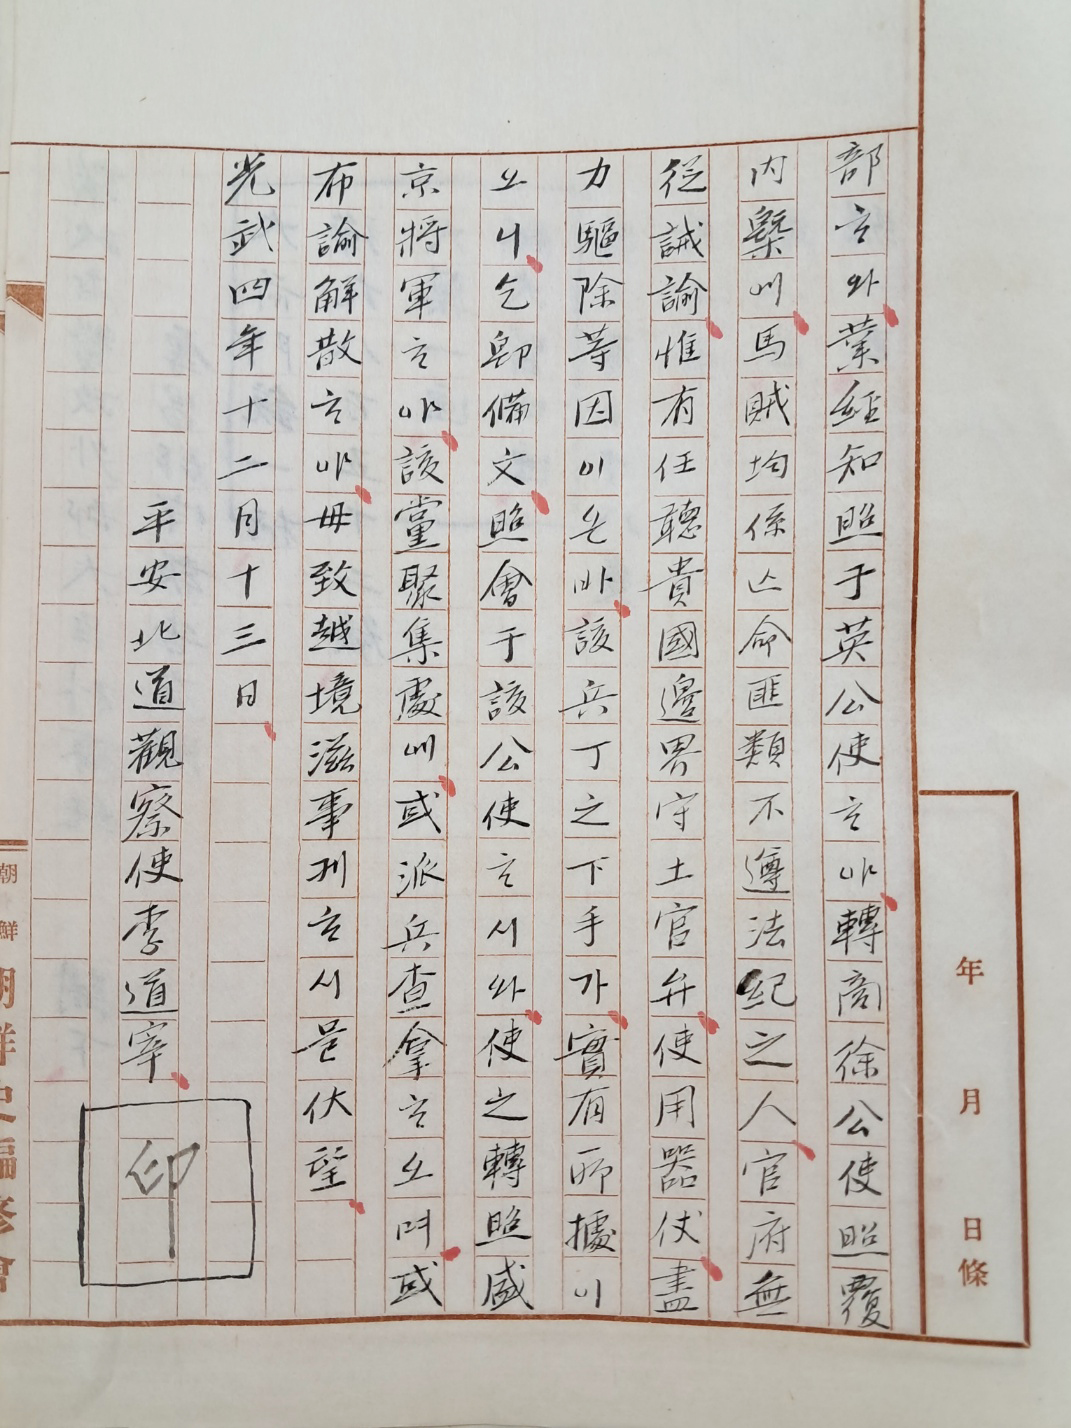 年 月 日條
部ᄒᆞ와業經知照于英公使ᄒᆞ야轉商徐公使照覆
内槩에馬賊均係亡命匪類不遵法紀之人官府無
從誡諭惟有任聽貴國邊界守土官弁使用器仗盡
力驅除等因이온바該兵丁之下手가實有所據이
오니乞卽備文照會于該公使ᄒᆞ시와使之轉照盛
京將軍ᄒᆞ야該黨聚集處에或派兵查拿ᄒᆞ오며或
布諭解散ᄒᆞ야毋致越境滋事케ᄒᆞ시믈伏望
光武四年十二月十三日
平安北道觀察使李道宰 印
朝鮮
朝鮮史編修會